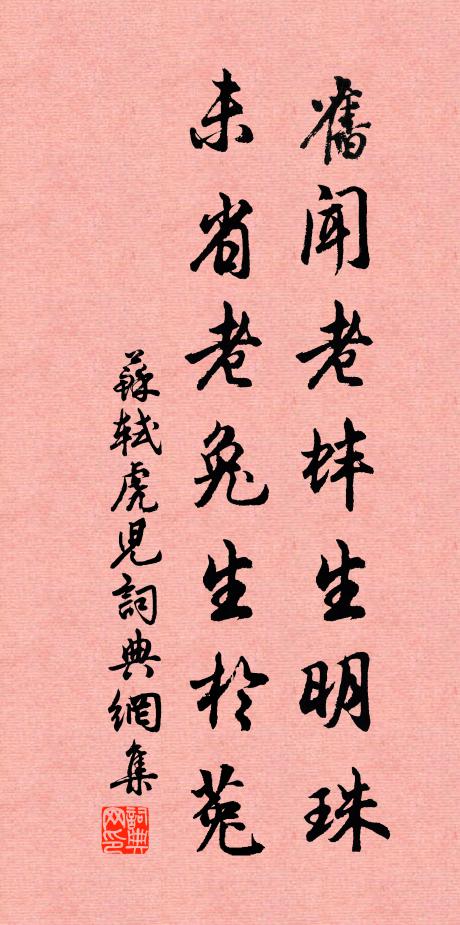 舊闻老蚌生明珠
未省老兔生於菟
蘇軾虎児詞典網集
詞典网印